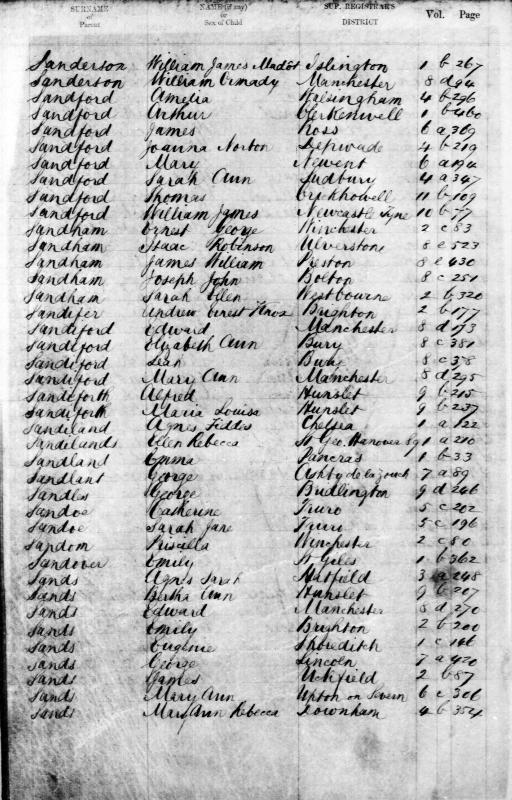 SURNAME of Parent NAME (if any) or Sex of Child SUP. REGISTRAR'S DISTRICT Vol. Page
Sanderson William James Islington 1 b 267
Sanderson William Manchester 8 d 94
Sandford Amelia Walsingham 4 b 296
Sandford Arthur Clerkenwell 1 b 460
Sandford James Ross 6 a 369
Sandford Joanna Norton Depwade 4 b 219
Sandford Mary Newent 6 a 194
Sandford Sarah Ann Sudbury 4 a 347
Sandford Thomas Crickhowell 11 b 109
Sandford William James Newcastle Tyne 10 b 77
Sandham Ernest George Winchester 2 c 83
Sandham Isaac Robinson Ulverstone 8 e 523
Sandham James William Preston 8 e 430
Sandham Joseph John Bolton 8 c 251
Sandham Sarah Ellen Westbourne 2 b 320
Sandifer Andrew Ernest Knox Brighton 2 b 177
Sandiford Edward Manchester 8 d 173
Sandiford Elizabeth Ann Bury 8 c 381
Sandiford Leah Bury 8 c 378
Sandiford Mary Ann Manchester 8 d 295
Sandiforth Alfred Hunslet 9 b 215
Sandiforth Maria Louisa Hunslet 9 b 237
Sandiland Agnes Chelsea 1 a 122
Sandilands Ellen Rebecca St Geo. Hanover Sq 1 a 210
Sandlant Emma Pancras 1 b 33
Sandlant George Ashby de la Zouch 7 a 89
Sandles George Bridlington 9 d 246
Sandoe Catherine Truro 5 c 202
Sandoe Sarah Jane Truro 5 c 196
Sandom Priscilla Winchester 2 c 80
Sandover Emily St Giles 1 b 362
Sands Agnes Sarah Hatfield 3 a 248
Sands Bertha Ann Hunslet 9 b 207
Sands Edward Manchester 8 d 270
Sands Emily Brighton 2 b 200
Sands Eugenie Shoreditch 1 c 146
Sands George Lincoln 7 a 420
Sands James Uckfield 2 b 87
Sands Mary Ann Upton on Severn 6 c 306
Sands Mary Ann Rebecca Downham 4 b 354